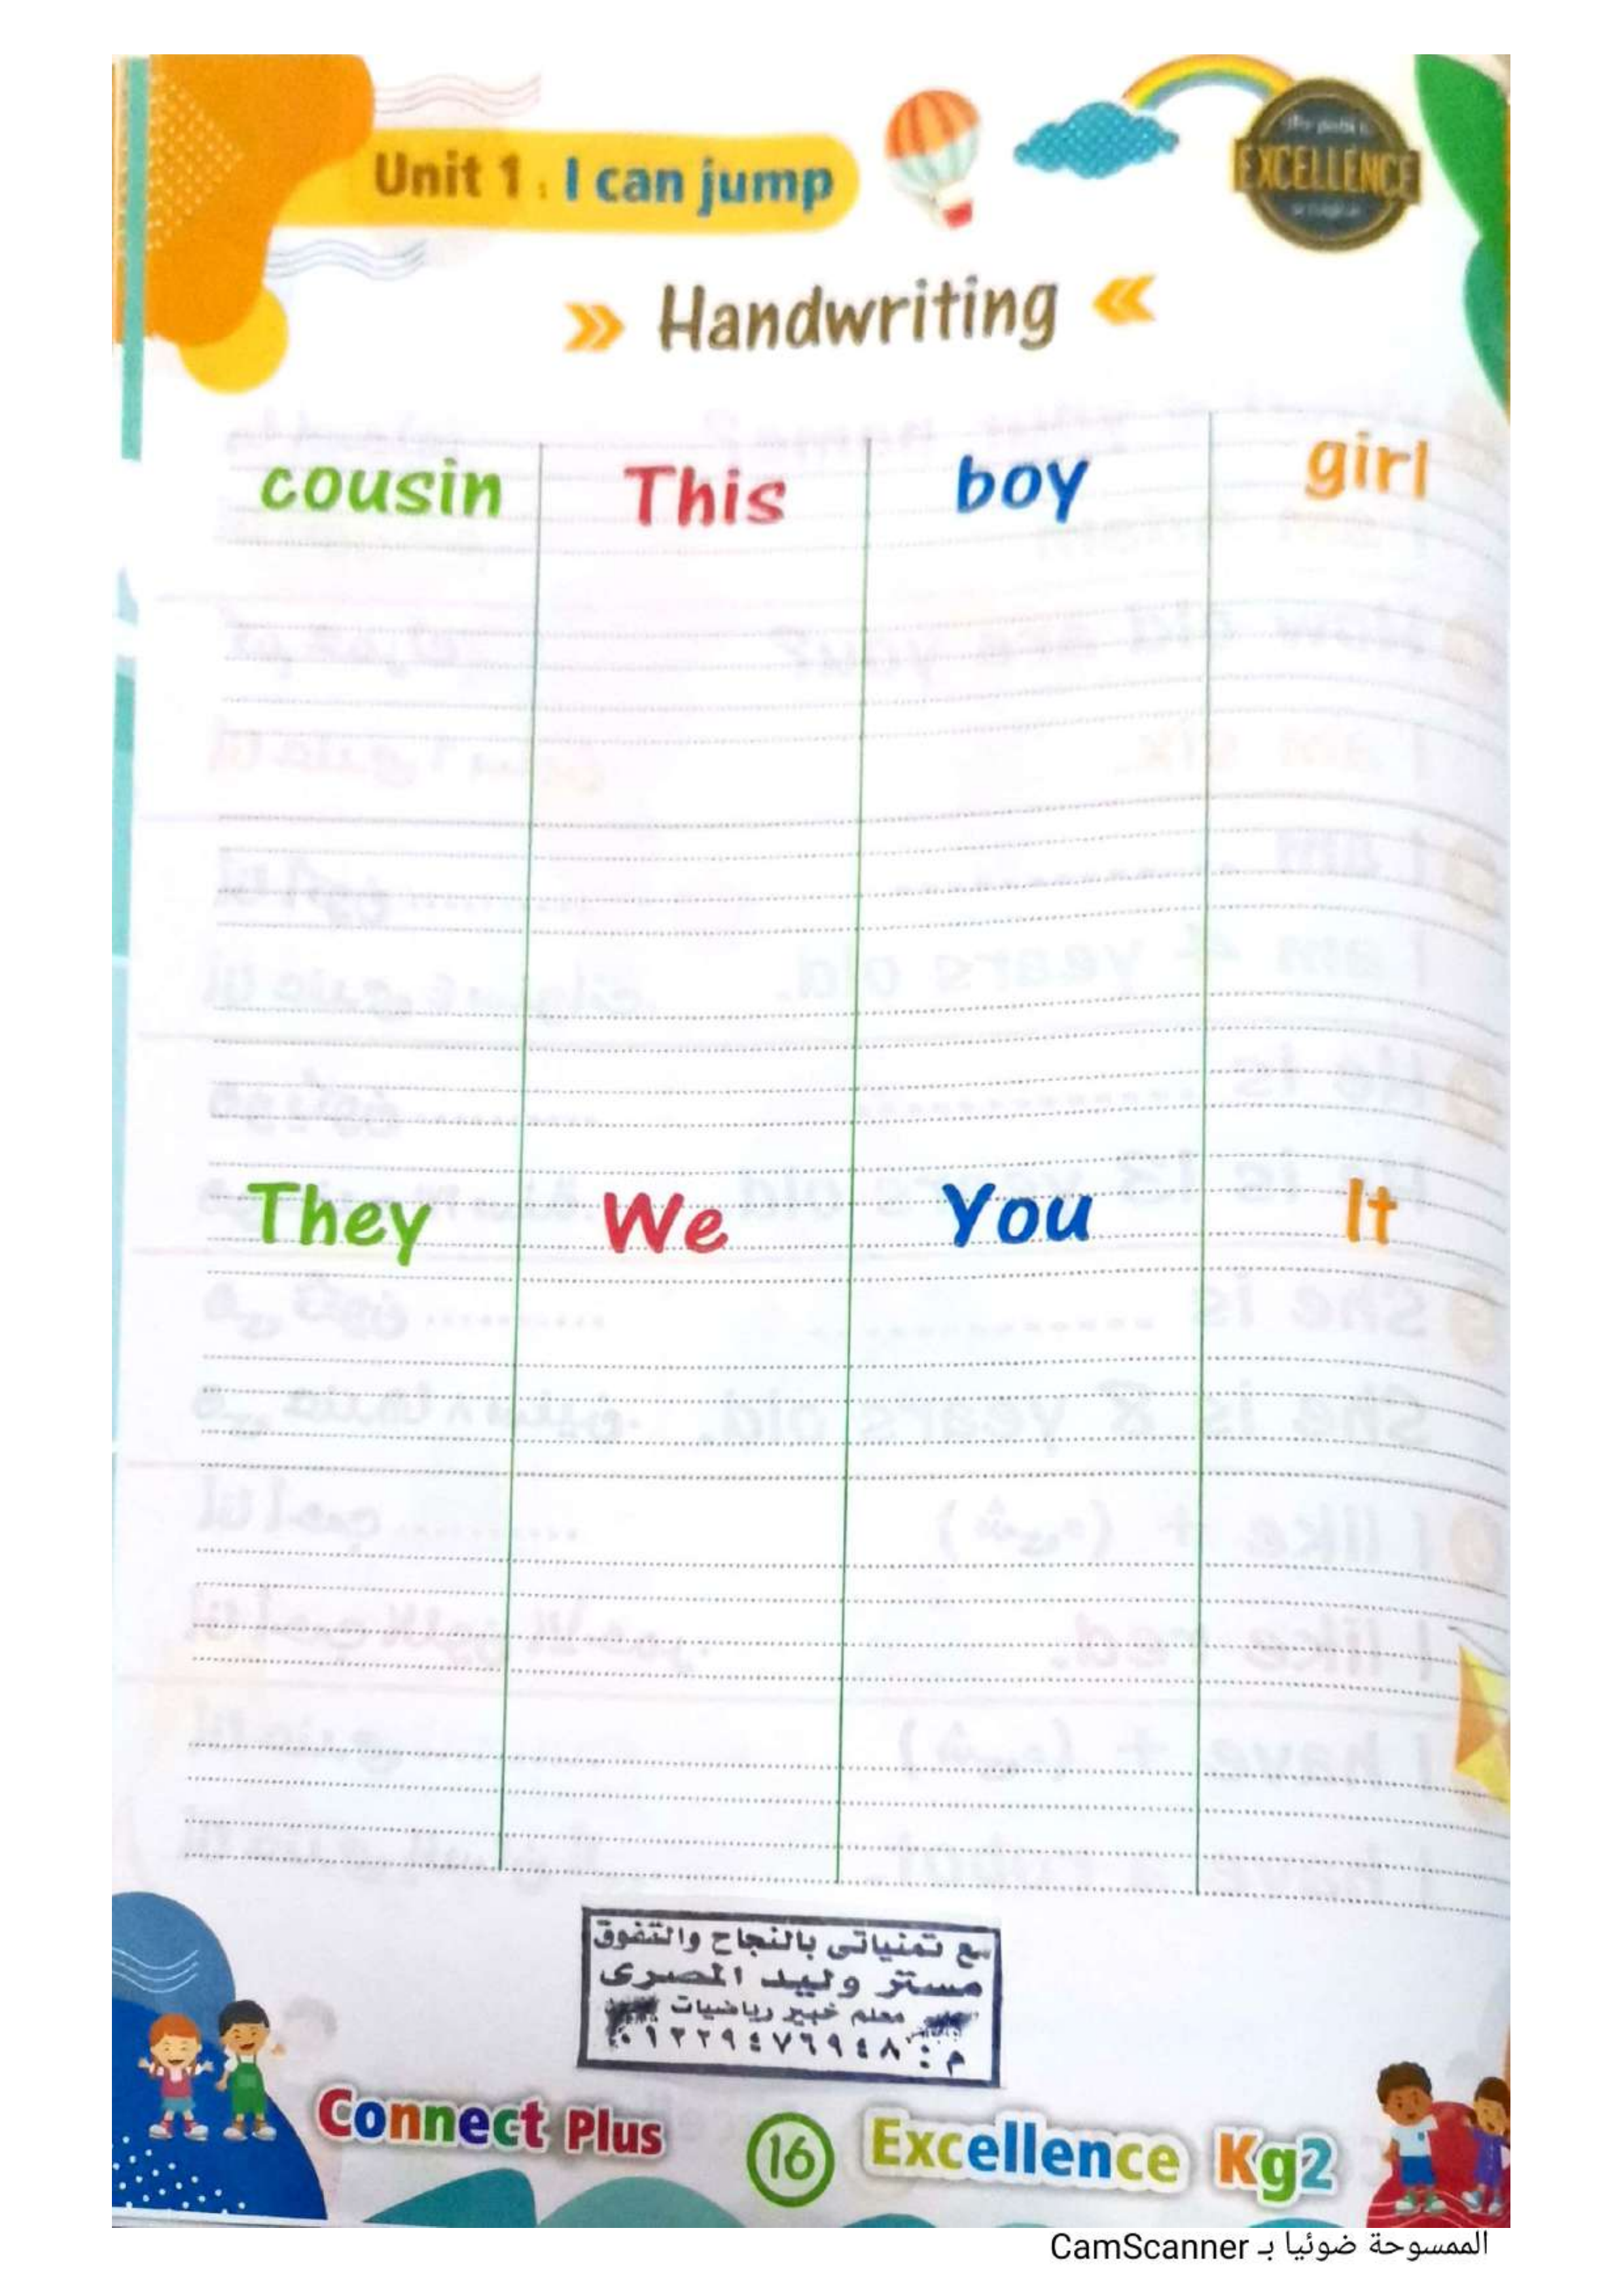 Unit 1 : I can jump
EXCELLENCE
» Handwriting «
cousin This boy girl
They We You It
مع تمنياتى بالنجاح والتفوق
مستر وليد المصرى
معلم خبير رياضيات
م : ٠١٢٢٩٤٧٦٩٤٨
Connect Plus 16 Excellence Kg2
الممسوحة ضوئيا بـ CamScanner